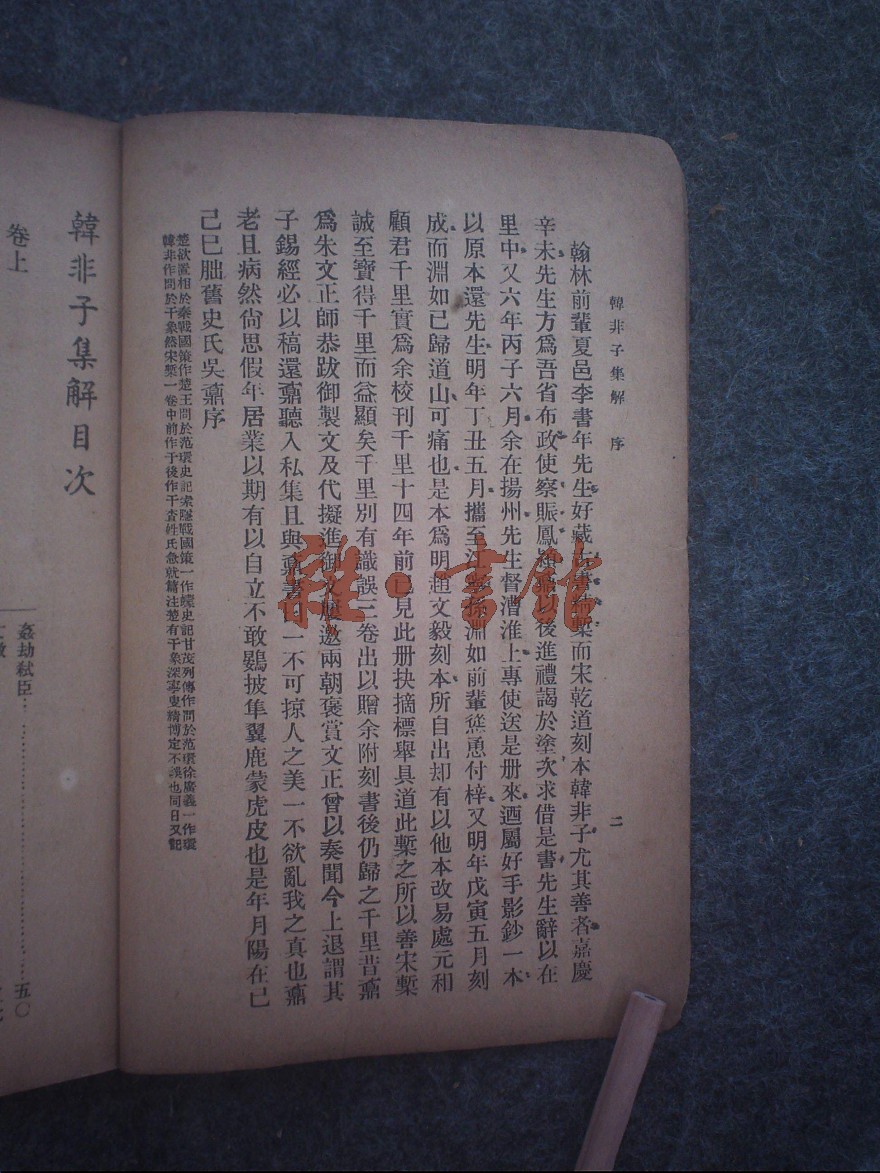 韓非子集解 序 二
翰林前輩夏邑李書年先生好藏古書而宋乾道刻本韓非子尤其善者嘉慶
辛未先生方爲吾省布政使察賑鳳以後進禮謁於塗次求借是書先生辭以在
里中又六年丙子六月余在揚州先生督漕淮上專使送是册來迺屬好手影鈔一本
以原本還先生明年丁丑五月攜至江淵如前輩慫恿付梓又明年戊寅五月刻
成而淵如已歸道山可痛也是本爲明趙文毅刻本所自出却有以他本改易處元和
顧君千里實爲余校刊千里十四年前已見此册抉摘標舉具道此槧之所以善宋槧
誠至寶得千里而益顯矣千里別有識誤三卷出以贈余附刻書後仍歸之千里昔鼒
爲朱文正師恭跋御製文及代擬進御文邀兩朝褒賞文正曾以奏聞今上退謂其
子錫經必以稿還鼒聽入私集且與鼒書一不可掠人之美一不欲亂我之真也鼒
老且病然尙思假年居業以期有以自立不敢鷃披隼翼鹿蒙虎皮也是年月陽在己
己巳朏舊史氏吳鼒序
楚欲置相於秦戰國策作楚王問於范環史記索隱戰國策一作蠉史記甘茂列傳作問於范環徐廣義一作環
韓非作問於干象然宋槧一卷中前作于後作干查姓氏急就篇注楚有干象深寧叟精博定不誤也同日又記
韓非子集解目次
卷上
姦劫弒臣…五〇
雜·書館